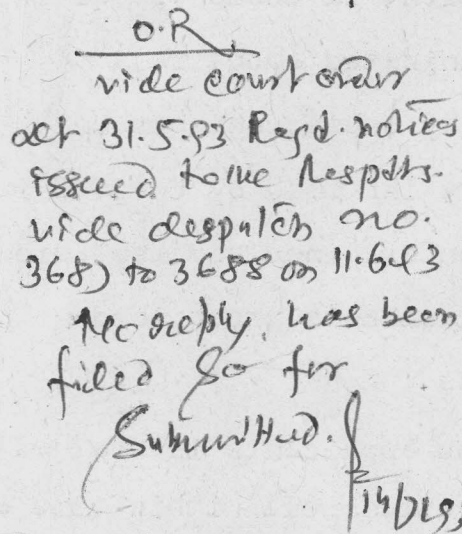 O.R
vide court order
dt 31.5.93 Regd. notices
issued to the Respdts.
vide despatch no.
3687 to 3688 on 11.6.93
No reply, has been
filed so far
Submitted.